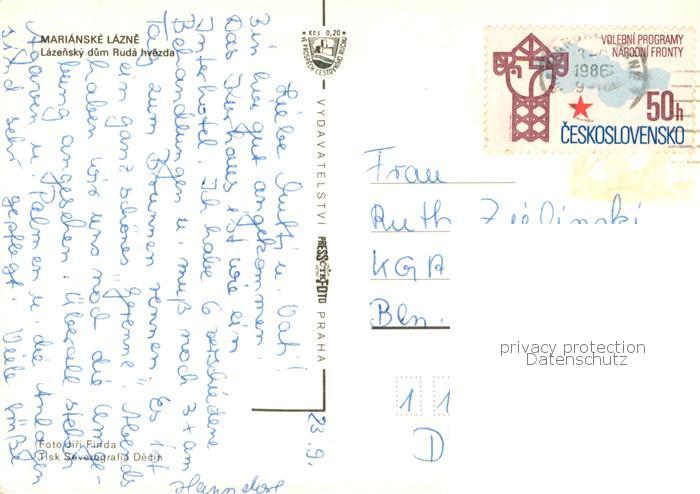 MARIÁNSKÉ LÁZNĚ
Lázeňský dům Rudá hvězda
Kčs 0,20
VE PROSPĚCH CESTOVNÍHO RUCHU
VOLEBNÍ PROGRAMY
NÁRODNÍ FRONTY
1986
50h
ČESKOSLOVENSKO
23.9.
Liebe Mutti u. Vati!
Bin hier gut angekommen.
Das Kurhaus ist wie ein
Interhotel. Ich habe 6 verschiedene
Behandlungen u. muß noch 3x am
Tag zum Brunnen rennen. Es ist
ein ganz schönes "Gerenne". Abends
haben wir uns noch die Umge-
bung angesehen. Überall stehen
Agaven u. Palmen u. die Anlagen
sind sehr gepflegt. Viele Grüße
Hannelore
VYDAVATELSTVÍ PRESSFOTO PRAHA
ČTK
Frau
Ruth Zielinski
KGA
Bln.
privacy protection
Datenschutz
1 1
D
Foto Jiří Finda
Tisk Severografia Děčín